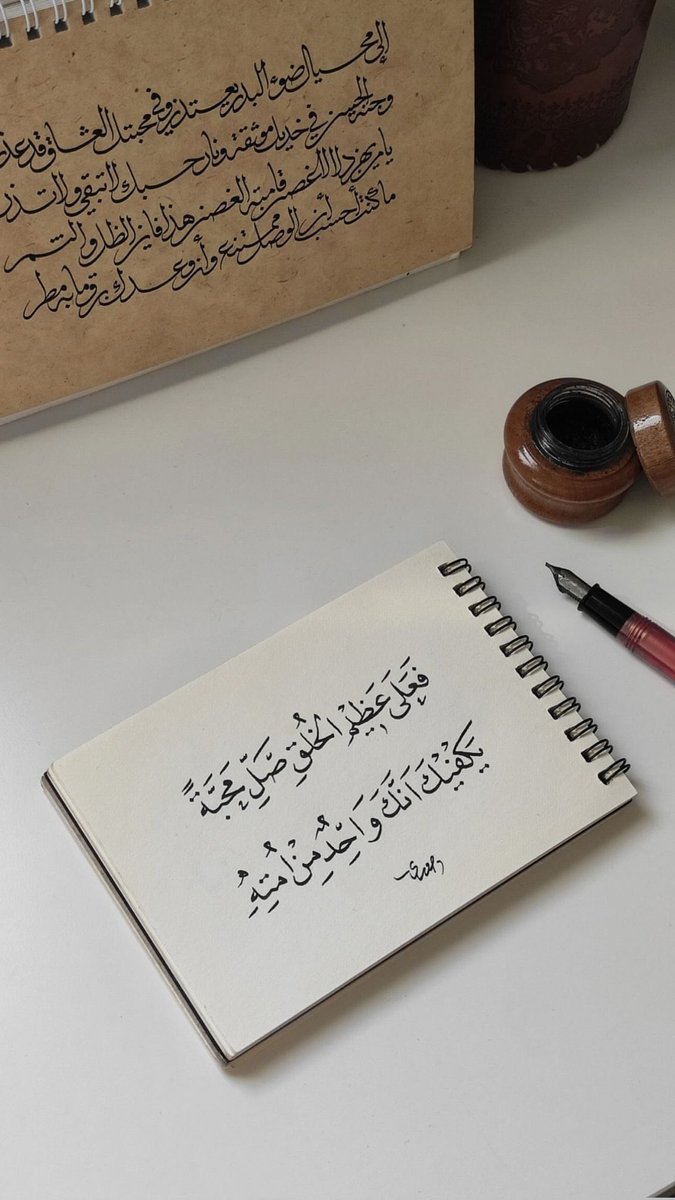 إلى محياك ضوء البدر يعتذر وفي محبتك العشاق قد
وجنة الحسن في خديك موثقة ونار لا تبقي ولا تذر
يا من يهز دلالا غصن قامته الغصن هذا فأين الظل والثمر
ما كنت أحسب أن الوصل ممتنع وأن وعدك برق ما به مطر
فَعَلَى عَظِيْمِ الخُلُقِ صَلِّ مَحَبَّةً
يَكْفِيْكَ اَنَّكَ وَاحِدٌ مِنْ اُمَّتِهِ